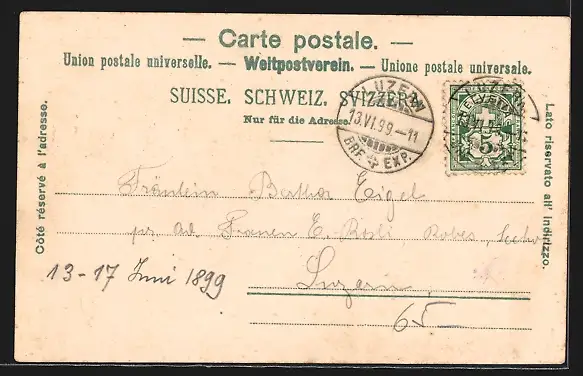 — Carte postale. —
Union postale universelle. — Weltpostverein. — Unione postale universale.
SUISSE. SCHWEIZ. SVIZZERA.
Nur für die Adresse.
LUZERN
13.VI.99–11
BRF. EXP.
HELVETIA
5
Côté réservé à l'adresse.
Lato riservato all' indirizzo.
Fräulein Bertha Eigel
pr. Ad. Frauen E. Rösli, Robes,
Luzern
13-17 Juni 1899
65-